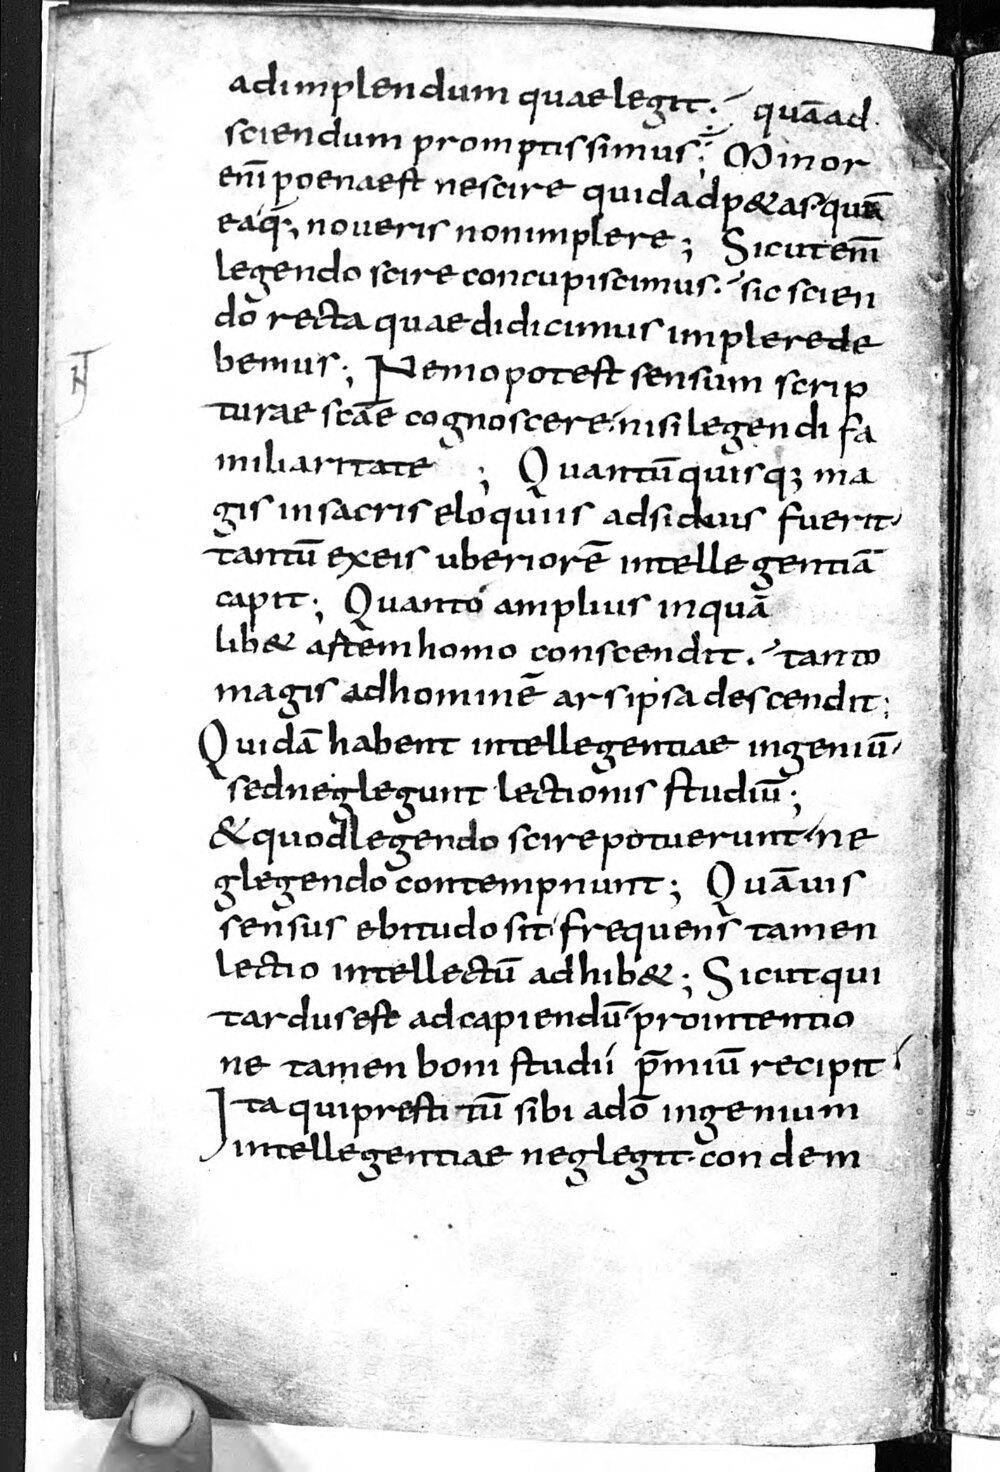 adimplendum quae legit. quā ad
sciendum promptissimus; Minor
enī poena est nescire quid adp&as quā
ea q; noueris non implere; Sicut enī
legendo scire concupiscimus. sic scien
do recta quae didicimus implere de
bemus; Nemo potest sensum scrip
turae scāe cognoscere nisi legendi fa
miliaritate ; Quantū quisq; ma
gis in sacris eloquiis adsiduus fuerit
tantū ex eis uberiorē intellegentiā
capit; Quanto amplius in quā
lib& astem homo conscendit. tanto
magis ad hominē ars ipsa descendit;
Quidā habent intellegentiae ingeniū
sed neglegunt lectionis studiū;
& quod legendo scire potuerunt ne
glegendo contempnunt; Quāuis
sensus ebitudo sit frequens tamen
lectio intellectū adhib&; Sicut qui
tardus est ad capiendū pro intentio
ne tamen boni studii p̄miū recipit
Ita qui prestitū sibi a dō ingenium
intellegentiae neglegit. condem